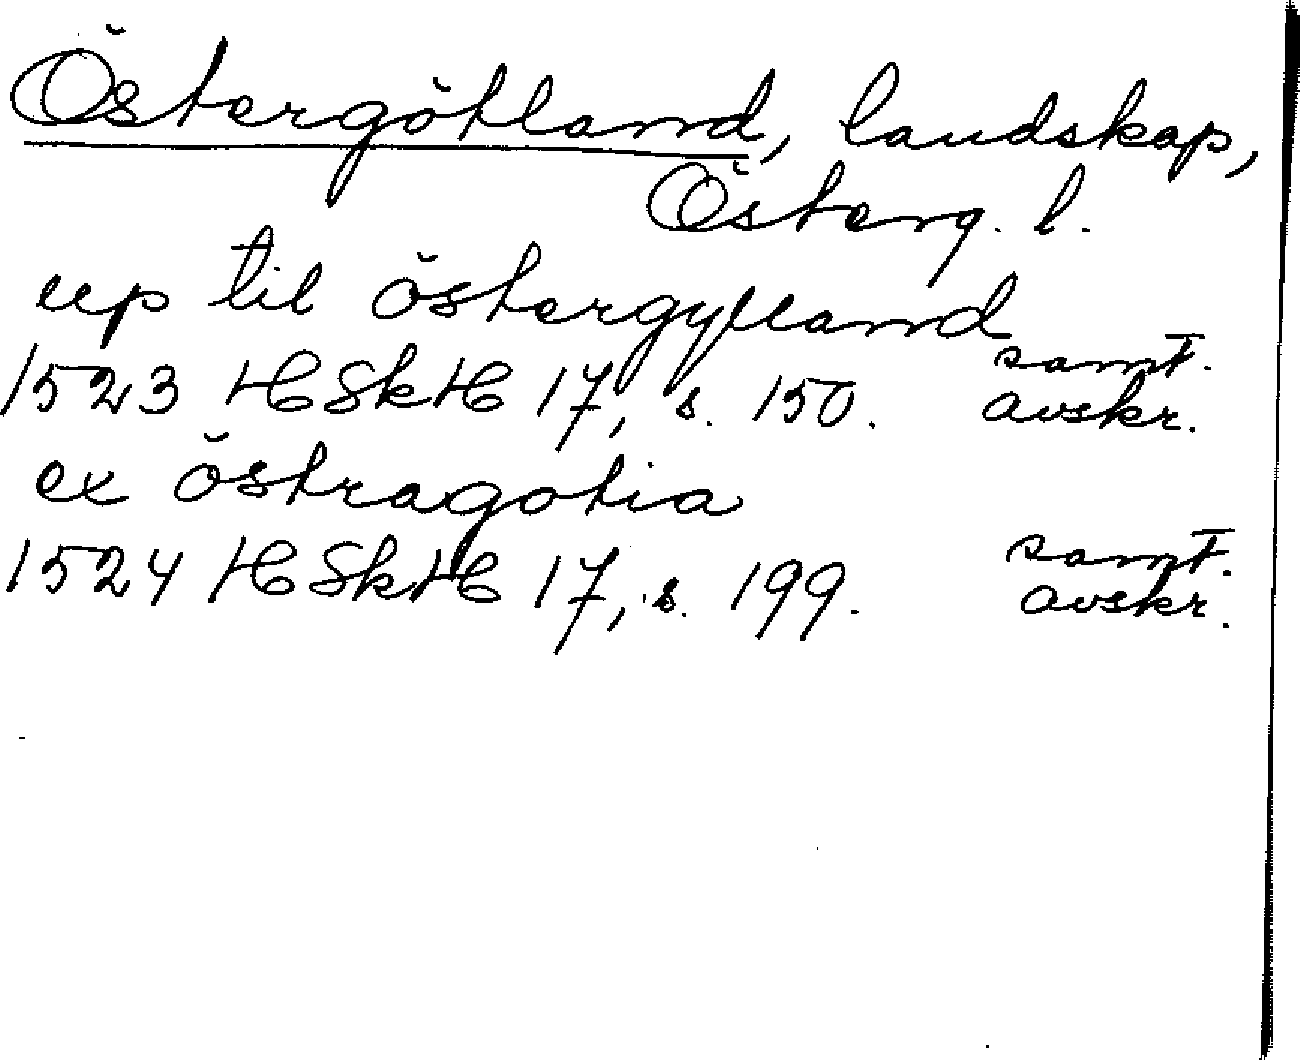 Östergötland, landskap,
Österg. l.
up til östergylland
samt.
1523 HSkH 17, s. 150. avskr.
ex östragotia
samt.
1524 HSkH 17, s. 199. avskr.